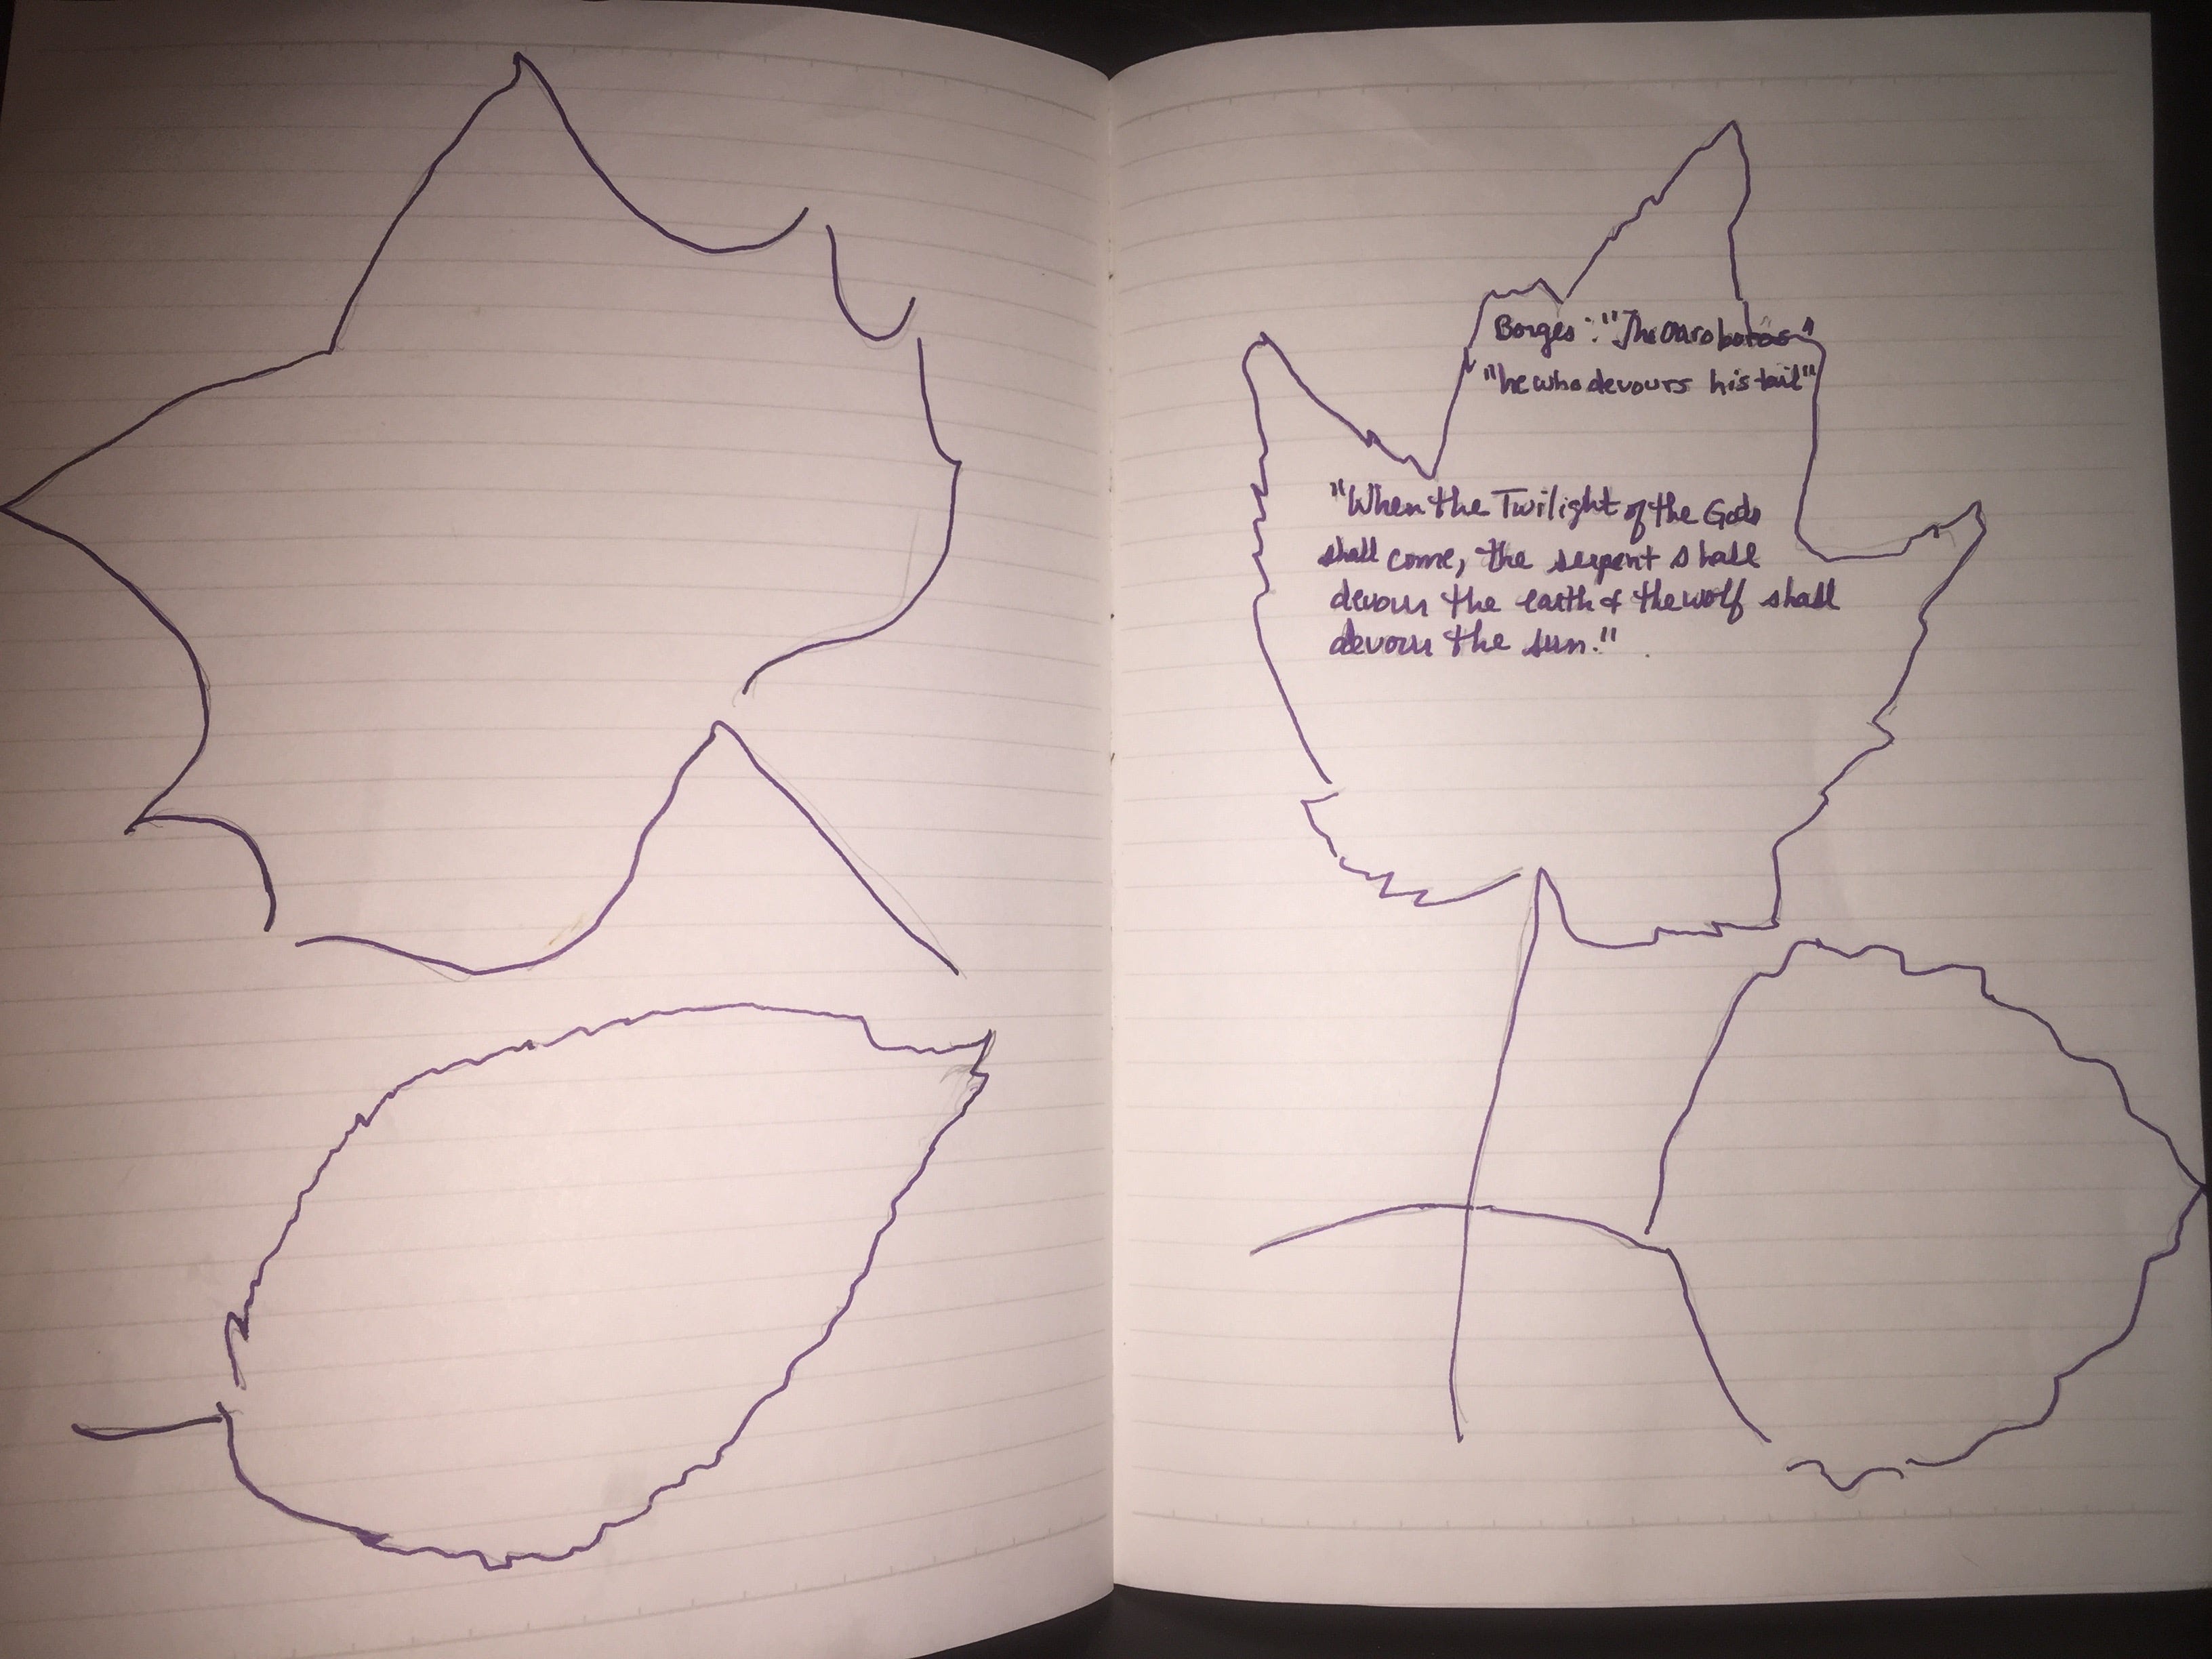 Borges: "The Ouroboros"
"he who devours his tail"
"When the Twilight of the Gods
shall come, the serpent shall
devour the earth & the wolf shall
devour the sun."